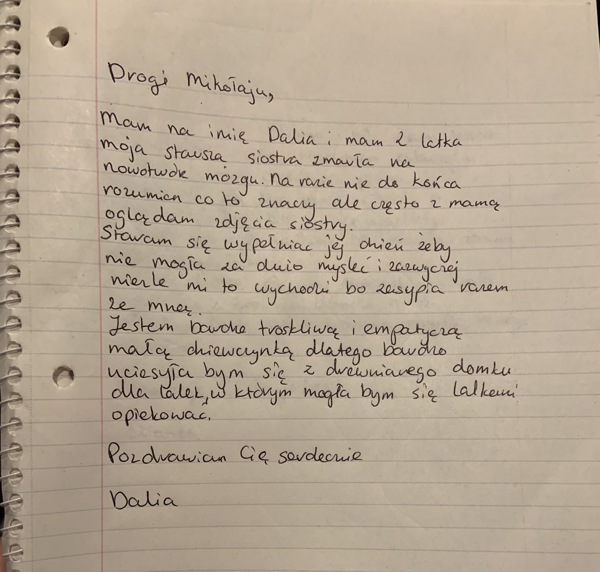 Drogi Mikołaju,
Mam na imię Dalia i mam 2 latka
moja starsza siostra zmarła na
nowotwór mózgu. Na razie nie do końca
rozumien co to znaczy ale często z mamą
oglądam zdjęcia siostry.
Staram się wypełniac jej dzień żeby
nie mogła za dużo mysleć i zazwyczej
niezle mi to wychodzi bo zasypia razem
ze mną.
Jestem bardzo troskliwą i empatyczą
małcą dziewczynką dlatego bardzo
ucieszyła bym się z drewnianego domku
dla lalek, w którym mogła bym się lalkami
opiekowac.
Pozdrawiam Cię serdecznie
Dalia